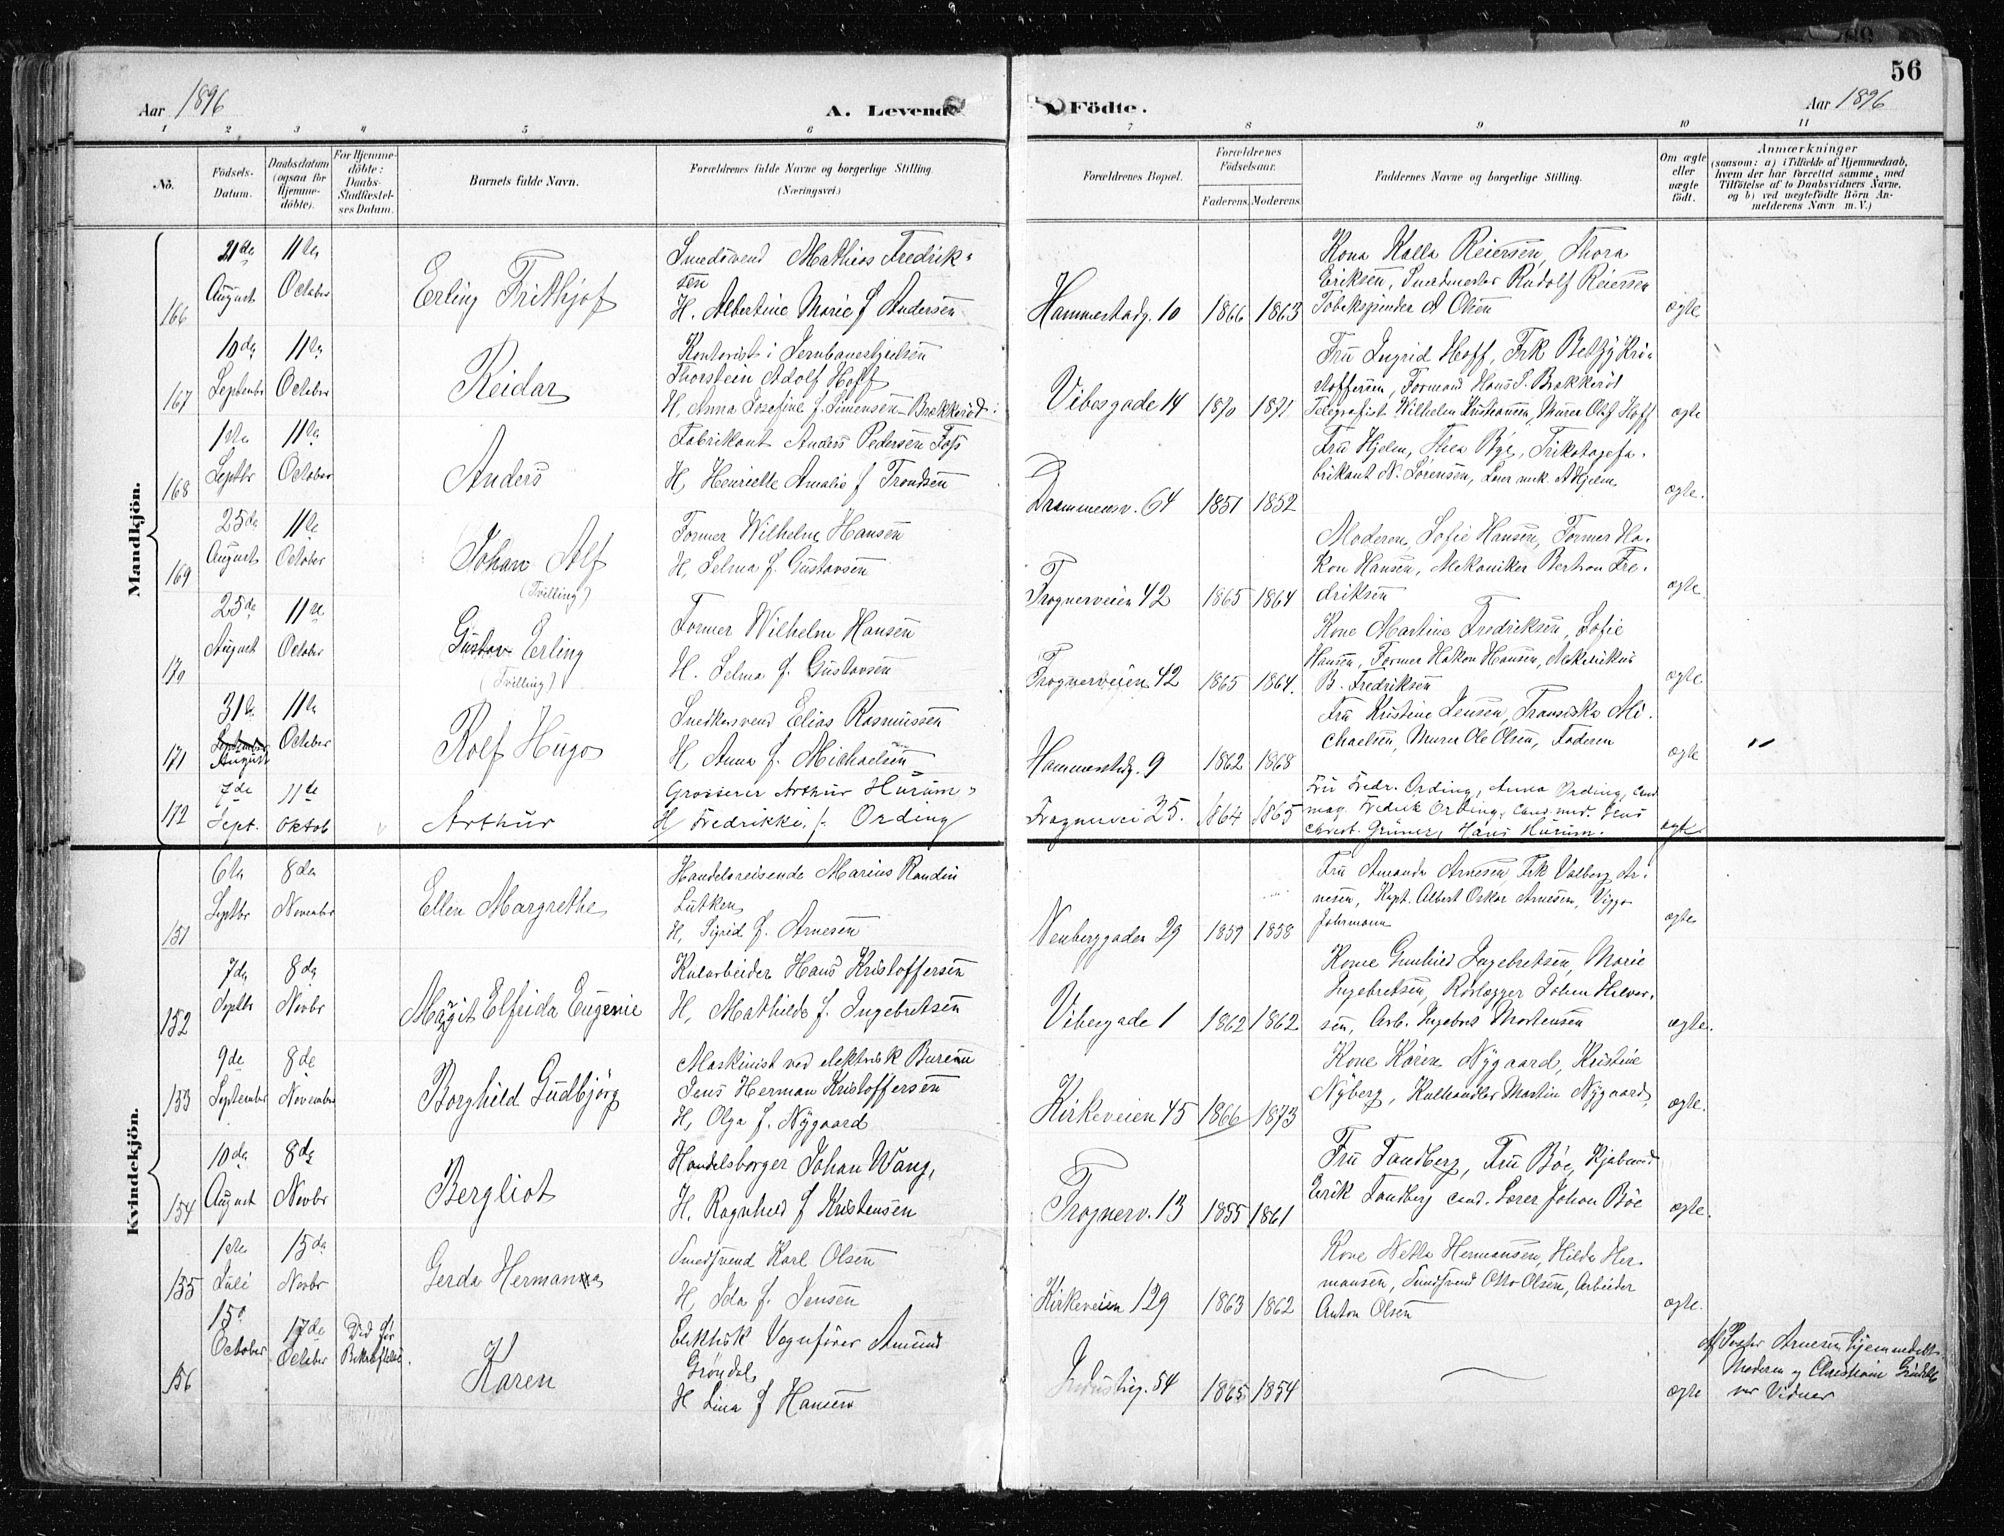 56
Aar 1896
A. Levende
Födte.
Aar 1896
1 2 3 4 5 6 7 8 9 10 11
No.
Födsels-Datum.
Daabsdatum (ogsaa for Hjemme-döbte).
For Hjemme-döbte: Daabs-Stadfæstel-ses Datum.
Barnets fulde Navn.
Forældrenes fulde Navne og borgerlige Stilling.
(Næringsvei.)
Forældrenes Bopæl.
Forældrenes Födselsaar.
Faderens. Moderens.
Faddernes Navne og borgerlige Stilling.
Om ægte eller uægte födt.
Anmærkninger
(saasom: a) i Tilfælde af Hjemmedaab, hvem der har forrettet samme, med Tilföielse af to Daabsvidners Navne, og b) ved uægtefödte Börn An-melderens Navn m. V.)
Mandkjön.
166 21de August 11te October Erling Frithjof
Smedsvend Mathias Fredrik-
sen
H. Albertine Marie f Andersen
Hammerstadg. 10 1866 1863
Kona Kalla Reiersen, Thora
Eriksen, Snedmester Rudolf Reiersen
Tobakspinder A Olsen
ægte
167 10de September 11te October Reidar
Kontorist i Jernbanestyrelsen
Thorstein Adolf Hoff
H. Anna Josefine f. Simensen-Brækkeröd
Vibesgade 14 1870 1871
Fru Ingrid Hoff, Frk Betzy Kri-
stoffersen, Formand Hans P. Brækkeröd
Telegrafist Wilhelm Kristiansen, Murer Olaf Hoff
ægte
168 1ste Septbr 11te October Anders
Fabrikant Anders Pedersen Foss
H. Henriette Amalie f Trondsen
Drammensv. 64 1851 1852
Fru Hjelm, Thea Bye, Trikotagefa-
brikant N. Sörensen, A Hjelm
ægte.
169 25de August 11te October Johan Alf
(Tvilling)
Former Wilhelm Hansen
H. Selma f. Gustavsen
Frognerveien 42 1865 1864
Moderen, Sofie Hansen, Former Ha-
kon Hansen, Mekaniker Bertram Fre-
driksen
ægte
170 25de August 11te October Gustav Erling
(Tvilling)
Former Wilhelm Hansen
H. Selma f. Gustavsen
Frognerveien 42 1865 1864.
Kone Martine Fredriksen, Sofie
Hansen, Former Hakon Hansen,
B. Fredriksen
ægte
171 31te September August 11te October Rolf Hugo
Snedkersvend Elias Rasmussen
H Anna f. Michaelsen
Hammerstadg. 9 1862 1868
Fru Kristine Jensen, Fransiska Mi-
chaelsen, Murer Ole Olsen, Faderen
ægte
172 7de Sept. 11te Oktob Arthur
Grosserer Arthur Hurum
H Fredrikke, f. Ording
Frognervei 25. 1864 1865
Fru Fredr. Ording, Anna Ording, cand
mag. Fredrik Ording, Cand. med. Jens
Christ. Grüner, Hans Hurum.
ægte
Kvindekjön.
151 6te Septbr 8de Novembr Ellen Margrethe
Handelsreisende Marius Randin
Lutken
H. Sigrid f. Arnesen
Neuberggaden 29 1859 1858
Fru Amanda Arnesen, Frk Valborg Ar-
nesen, Kapt. Albert Oskar Arnesen, Viggo
Johrmann
ægte
152 7de Septbr 8de Novbr Magit Elfrida Eugenie
Kularbeider Hans Kristoffersen
H. Mathilde f. Ingebretsen
Vibesgade 1 1862 1862
Kone Gunhild Ingebretsen, Marie
Ingebretsen, Rörlægger Johan Hilver-
sen, Arb. Ingebret Mortensen
ægte.
153 9de September 8de November Borghild Gudbjörg
Maskinist ved elektrisk Bureau
Jens Herman Kristoffersen
H. Olga f. Nygaard
Kirkeveien 45 1866 1873
Kone Karen Nygaard, Kristine
Nyberg, Kulhandler Martin Nygaard,
ægte.
154 10de August 8de Novbr Bergliot
Handelsborger Johan Wang,
H. Ragnhild f Kristensen
Frognerv. 13 1855 1861
Fru Tandberg, Fru Böe, Kjöbmand
Erik Tandberg cand. Lærer Johan Böe
ægte.
155 1ste Juli 15de Novbr Gerda Hermana
Smedsvend Karl Olsen
H. Ida f. Jensen
Kirkeveien 129 1863 1862
Kone Netta Hermansen, Hilda Her-
mansen, Smedsvend Otto Olsen, Arbeider
Anton Olsen
ægte.
156 15d October 17de October Död før Bekræftelse. Karen
Elektrisk Vognförer Amund
Gröndal,
H Lina f Hansen
Industrig. 54 1865 1854
ægte
Af Pastor Arnesen hjemmedöbt.
Moderen og Christiane Gröndal
var Vidner